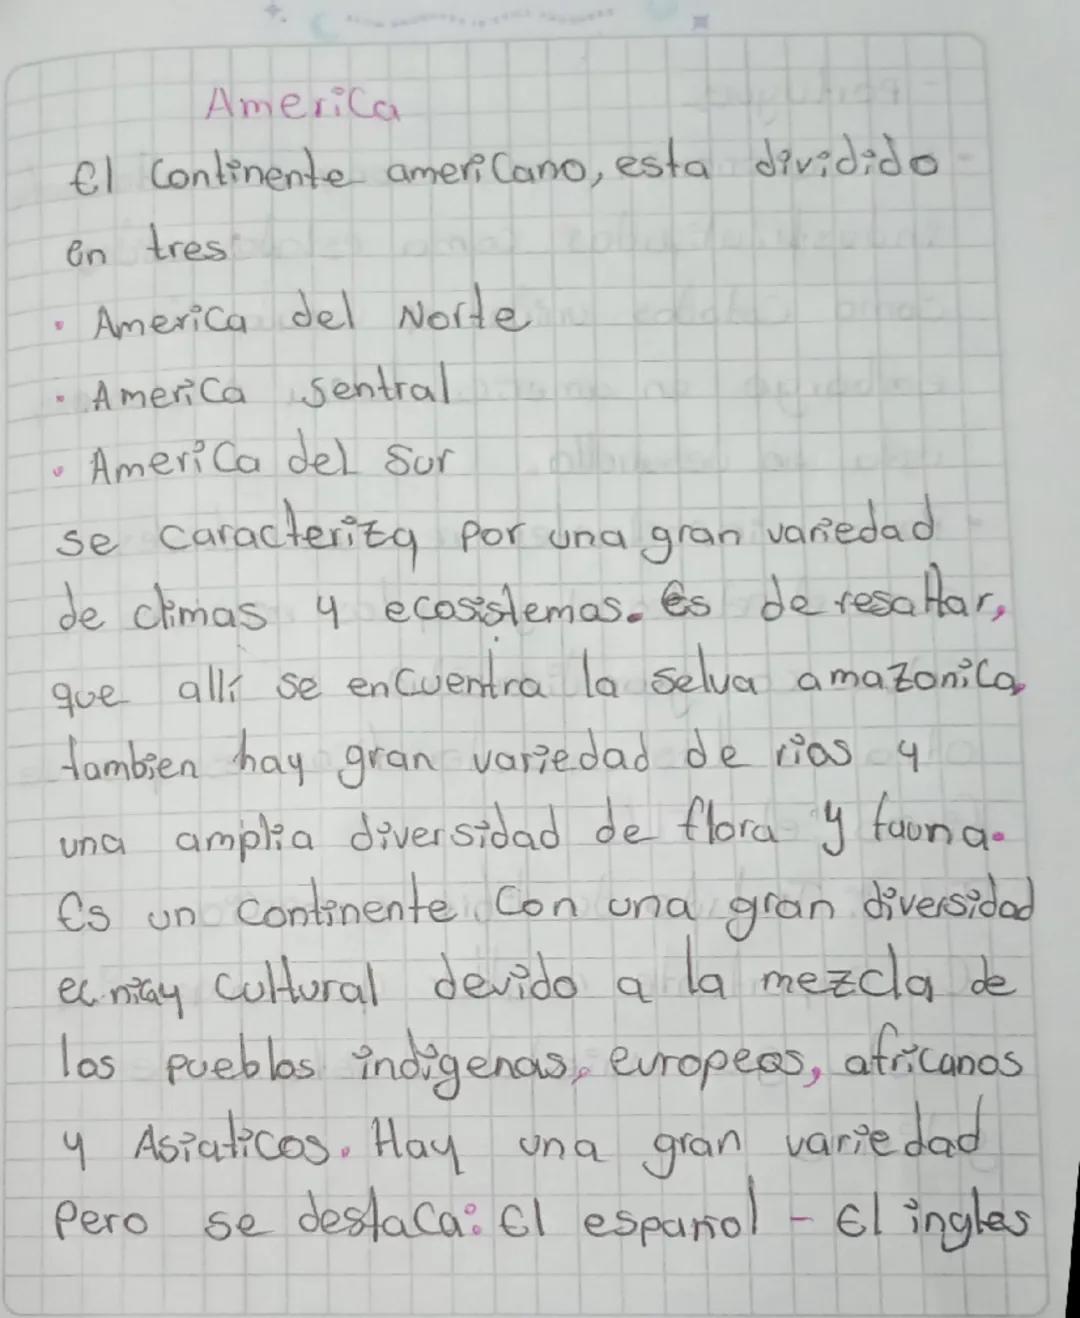 America
El continente americano, esta dividido
en tres
• America del Norte
• America sentral
• America del Sur
se caracteriza por una gran variedad
de climas y ecosistemas. es de resaltar,
que allí se encuentra la selva amazonica,
tambien hay gran variedad de rios y
una amplia diversidad de flora y fauna.
Es un continente con una gran diversidad
y cultural devido a la mezcla de
los pueblos indigenas, europeos, africanos
y Asiaticos. Hay una gran variedad
pero se destaca: El español - El ingles